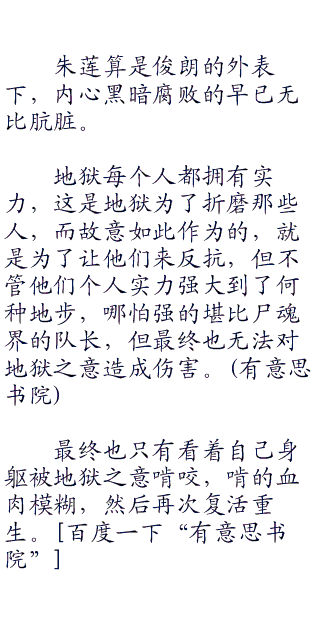 朱莲算是俊朗的外表
下，内心黑暗腐败的早已无
比肮脏。
地狱每个人都拥有实
力，这是地狱为了折磨那些
人，而故意如此作为的，就
是为了让他们来反抗，但不
管他们个人实力强大到了何
种地步，哪怕强的堪比尸魂
界的队长，但最终也无法对
地狱之意造成伤害。(有意思
书院)
最终也只有看着自己身
躯被地狱之意啃咬，啃的血
肉模糊，然后再次复活重
生。[百度一下“有意思书
院”]